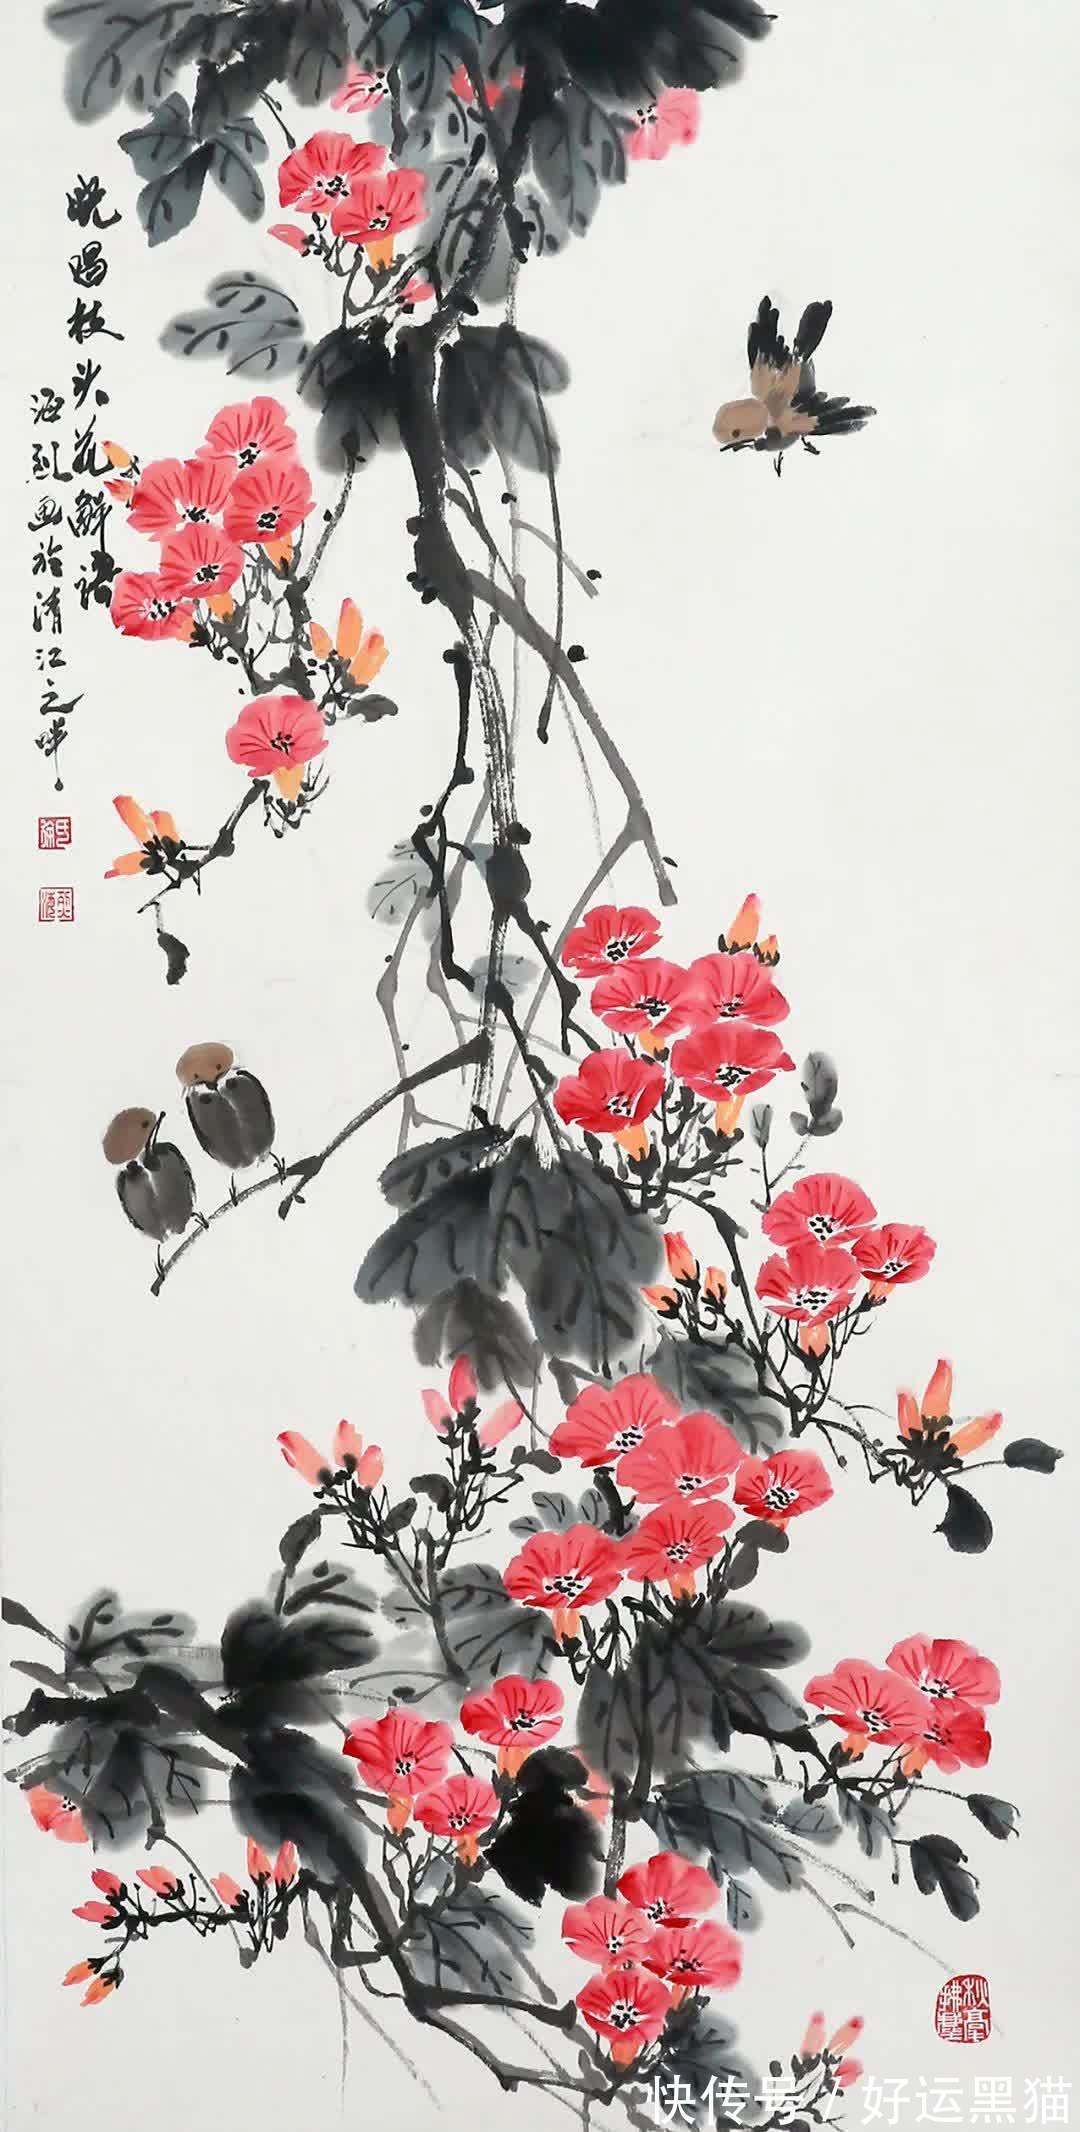 晚唱枝头花解语
画於清江之畔
快传号 / 好运黑猫